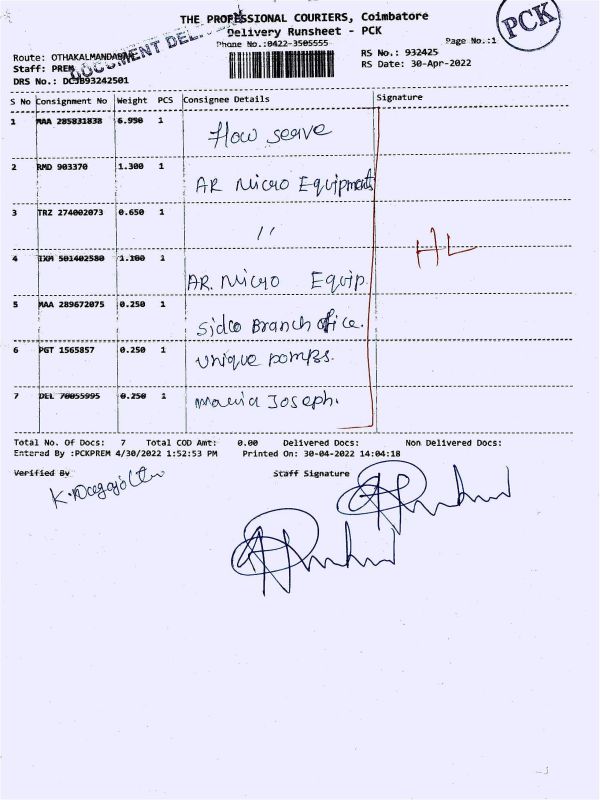 THE PROFESSIONAL COURIERS, Coimbatore
Delivery Runsheet - PCK
PCK
DOCUMENT DEL
Phone No.:0422-3505555
Page No.:1
Route: OTHAKALMANDAPAM
RS No.: 932425
Staff: PREM
RS Date: 30-Apr-2022
DRS No.: DCJB93242501
S No Consignment No Weight PCS Consignee Details Signature
1 MAA 285831838 6.950 1 Flow serve
2 RMD 903370 1.300 1 AR Micro Equipments
3 TRZ 274002073 0.650 1 11
HL
4 IXM 501402580 1.100 1 AR. Micro Equip.
5 MAA 289672075 0.250 1 Sidco Branch office.
6 PGT 1565857 0.250 1 unique pomps.
7 DEL 70055995 0.250 1 Maria Joseph.
Total No. Of Docs: 7 Total COD Amt: 0.00 Delivered Docs: Non Delivered Docs:
Entered By :PCKPREM 4/30/2022 1:52:53 PM Printed On: 30-04-2022 14:04:18
Verified By Staff Signature